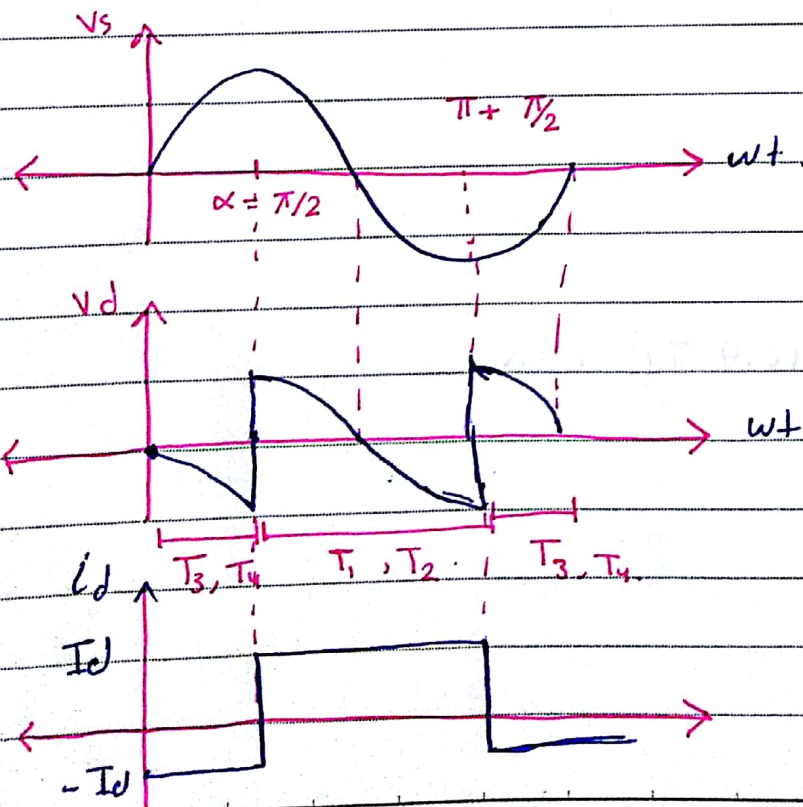 Vs
π + π/2
wt
α = π/2
Vd
wt
T3, T4
T1, T2.
T3, T4.
id
Id
-Id